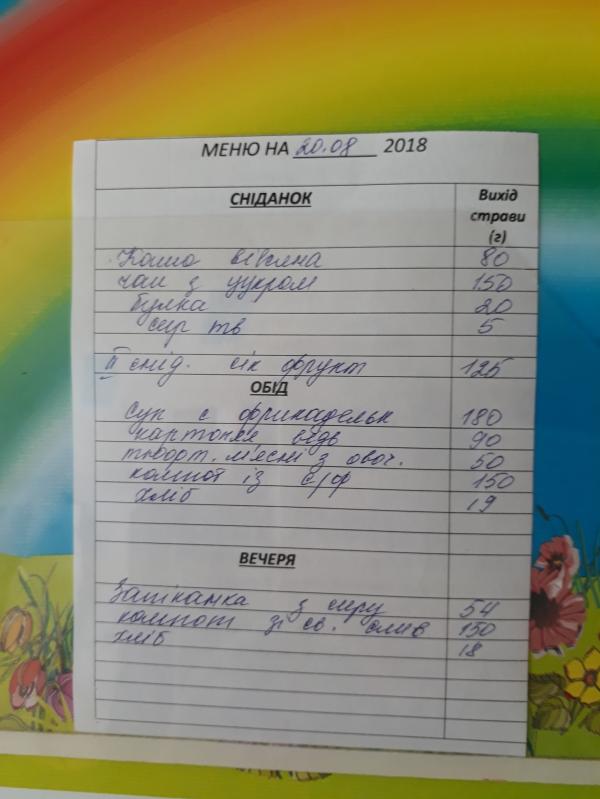 МЕНЮ НА 20.08 2018
СНІДАНОК
Вихід
страви
(г)
Каша вівсяна 80
чай з цукром 150
булка 20
сир тв 5
II снід. сік фрукт 125
ОБІД
Суп с фрикадельк 180
картопля відв 90
м'ясні з овоч. 50
компот із с/ф 150
хліб 19
ВЕЧЕРЯ
Запіканка з сиру 54
компот зі св. слив 150
хліб 18